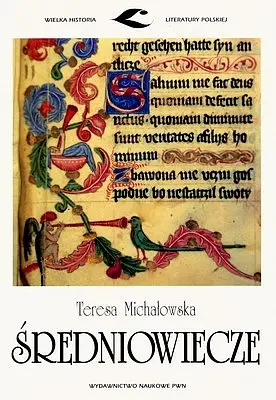 WIELKA HISTORIA
LITERATURY POLSKIEJ
recht gesehen hatte syn an
thcze
Saluum me fac deus
quoniam defecit sa
ctus quoniam diminute
sunt veritates a filijs ho
minum
Zbawona me uczin gos
podne bo nestatczil swoty
Teresa Michałowska
ŚREDNIOWIECZE
WYDAWNICTWO NAUKOWE PWN